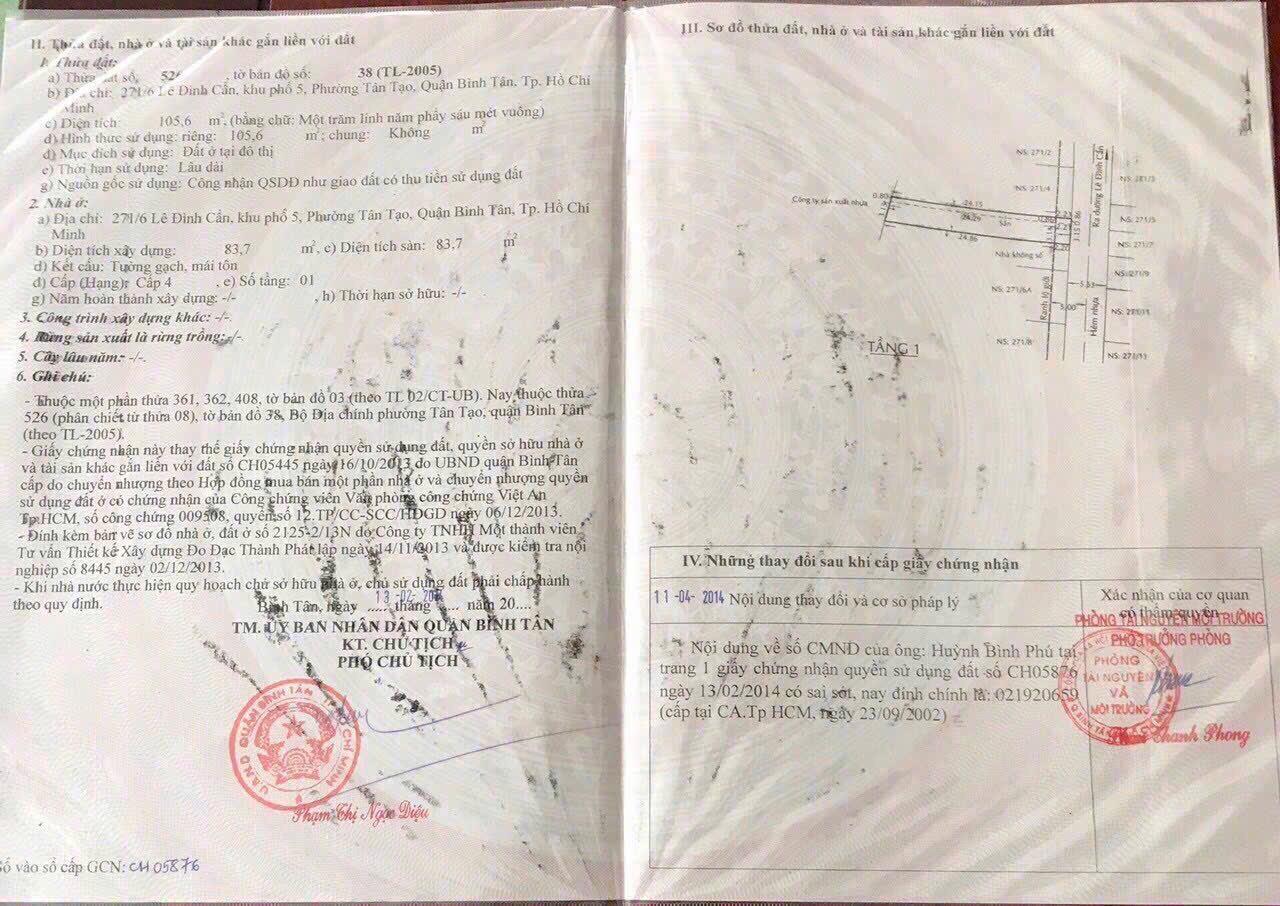 II. Thửa đất, nhà ở và tài sản khác gắn liền với đất
1. Thửa đất:
a) Thửa đất số: 526 , tờ bản đồ số: 38 (TL-2005)
b) Địa chỉ: 271/6 Lê Đình Cẩn, khu phố 5, Phường Tân Tạo, Quận Bình Tân, Tp. Hồ Chí
Minh
c) Diện tích: 105,6 m², (bằng chữ: Một trăm linh năm phẩy sáu mét vuông)
d) Hình thức sử dụng: riêng: 105,6 m²; chung: Không m²
đ) Mục đích sử dụng: Đất ở tại đô thị
e) Thời hạn sử dụng: Lâu dài
g) Nguồn gốc sử dụng: Công nhận QSDĐ như giao đất có thu tiền sử dụng đất
2. Nhà ở:
a) Địa chỉ: 271/6 Lê Đình Cẩn, khu phố 5, Phường Tân Tạo, Quận Bình Tân, Tp. Hồ Chí
Minh
b) Diện tích xây dựng: 83,7 m², c) Diện tích sàn: 83,7 m²
d) Kết cấu: Tường gạch, mái tôn
đ) Cấp (Hạng): Cấp 4 , e) Số tầng: 01
g) Năm hoàn thành xây dựng: -/- , h) Thời hạn sở hữu: -/-
3. Công trình xây dựng khác: -/-.
4. Rừng sản xuất là rừng trồng: -/-.
5. Cây lâu năm: -/-.
6. Ghi chú:
- Thuộc một phần thửa 361, 362, 408, tờ bản đồ 03 (theo TL 02/CT-UB). Nay thuộc thửa
526 (phân chiết từ thửa 08), tờ bản đồ 38, Bộ Địa chính phường Tân Tạo, quận Bình Tân
(theo TL-2005).
- Giấy chứng nhận này thay thế giấy chứng nhận quyền sử dụng đất, quyền sở hữu nhà ở
và tài sản khác gắn liền với đất số CH05445 ngày 16/10/2013 do UBND quận Bình Tân
cấp do chuyển nhượng theo Hợp đồng mua bán một phần nhà ở và chuyển nhượng quyền
sử dụng đất ở có chứng nhận của Công chứng viên Văn phòng công chứng Việt An
Tp.HCM, số công chứng 009508, quyển số 12.TP/CC-SCC/HĐGD ngày 06/12/2013.
- Đính kèm bản vẽ sơ đồ nhà ở, đất ở số 2125-2/13N do Công ty TNHH Một thành viên
Tư vấn Thiết kế Xây dựng Đo Đạc Thành Phát lập ngày 14/11/2013 và được kiểm tra nội
nghiệp số 8445 ngày 02/12/2013.
- Khi nhà nước thực hiện quy hoạch chủ sở hữu nhà ở, chủ sử dụng đất phải chấp hành
theo quy định.
13-02-2014
Bình Tân, ngày ..... tháng ..... năm 20....
TM. ỦY BAN NHÂN DÂN QUẬN BÌNH TÂN
KT. CHỦ TỊCH
PHÓ CHỦ TỊCH
U.B.N.D QUẬN BÌNH TÂN
Phạm Thị Ngọc Diệu
Số vào sổ cấp GCN: CH 05876
III. Sơ đồ thửa đất, nhà ở và tài sản khác gắn liền với đất
NS: 271/2
NS: 271/4
Công ty sản xuất nhựa
0.80
24.15
24.29
Sân
24.86
Nhà không số
NS: 271/6A
NS: 271/8
Ranh lộ giới
5.00
Hẻm nhựa
Ra đường Lê Đình Cẩn
NS: 271/3
NS: 271/5
NS: 271/7
NS: 271/9
NS: 271/11
NS: 271/11
TẦNG 1
IV. Những thay đổi sau khi cấp giấy chứng nhận
11-04-2014 Nội dung thay đổi và cơ sở pháp lý
Xác nhận của cơ quan
có thẩm quyền
Nội dung về số CMND của ông: Huỳnh Bình Phú tại
trang 1 giấy chứng nhận quyền sử dụng đất số CH05876
ngày 13/02/2014 có sai sót, nay đính chính là: 021920659
(cấp tại CA.Tp HCM, ngày 23/09/2002)
PHÒNG TÀI NGUYÊN MÔI TRƯỜNG
PHÓ TRƯỞNG PHÒNG
PHÒNG
TÀI NGUYÊN
VÀ
MÔI TRƯỜNG
Thanh Phong